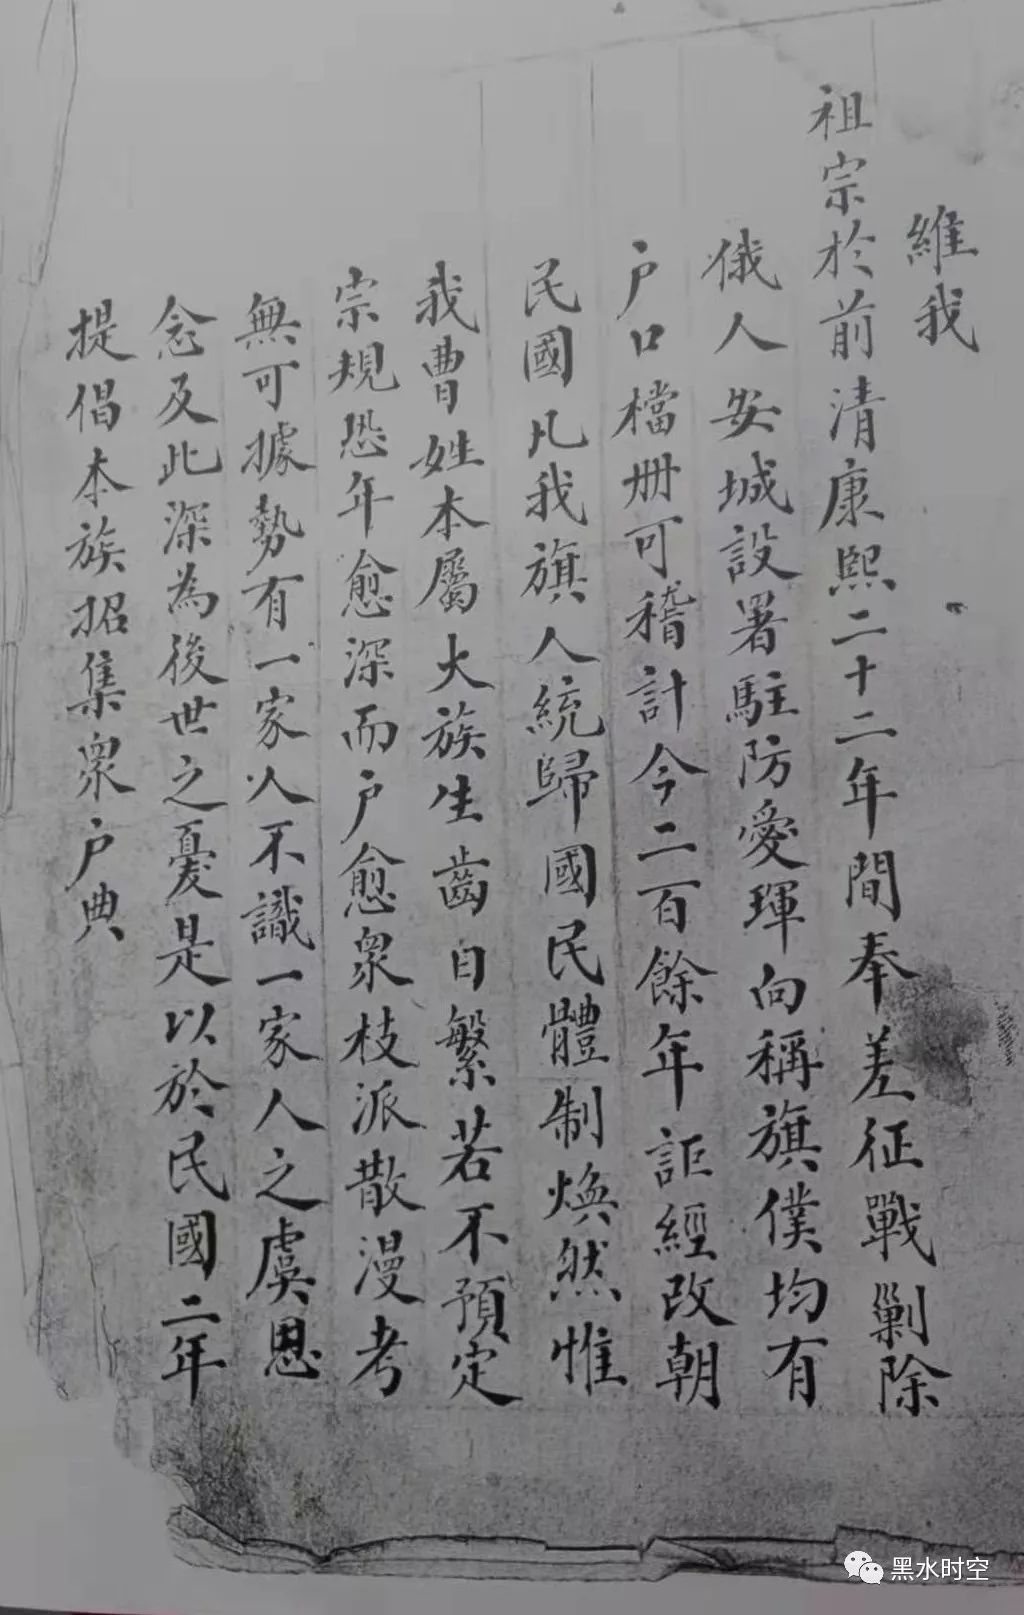 維我
祖宗於前清康熙二十二年間奉差征戰剿除
俄人安城設署駐防愛琿向稱旗僕均有
户口檔册可稽計今二百餘年詎經改朝
民國凡我旗人統歸國民體制煥然惟
我曹姓本屬大族生齒自繁若不預定
宗規恐年愈深而户愈衆枝派散漫考
無可據勢有一家人不識一家人之虞思
念及此深為後世之憂是以於民國二年
提倡本族招集衆户典
黑水时空